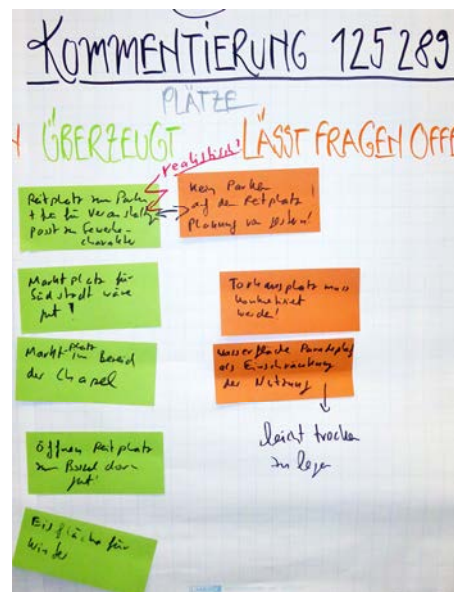 KOMMENTIERUNG 125289
PLÄTZE
ÜBERZEUGT
LÄSST FRAGEN OFFE
realistisch!
Reitplatz zum Parken
+ für Veranstalt
passt zu Gewerbe-
charakter
Marktplatz für
Südstadt wäre
gut!
Markt-platz im Bereich
der Chapel
öffnen Reitplatz
zum
gut!
Eisfläche für
Winter
Kein Parken
auf dem Reitplatz!
Planung von gestern!
Torhausplatz muss
konkretisiert
werden!
Wasserfläche Paradeplatz
als Einschränkung
der Nutzung
leicht trocken
zu legen